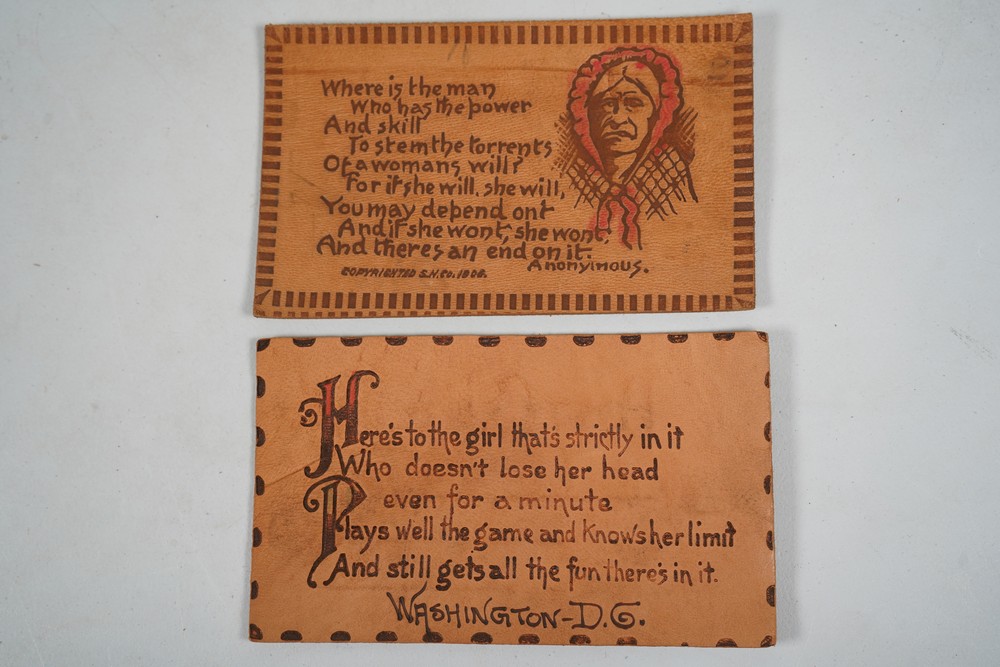 Where is the man
Who has the power
And skill
To stem the torrents
Of a womans will?
For if she will, she will,
You may depend ont
And if she wont, she wont,
And theres an end on it.
Anonymous.
COPYRIGHTED S.H.CO. 1906.
Here's to the girl that's strictly in it
Who doesn't lose her head
even for a minute
Plays well the game and Knows her limit
And still gets all the fun there's in it.
WASHINGTON-D.C.